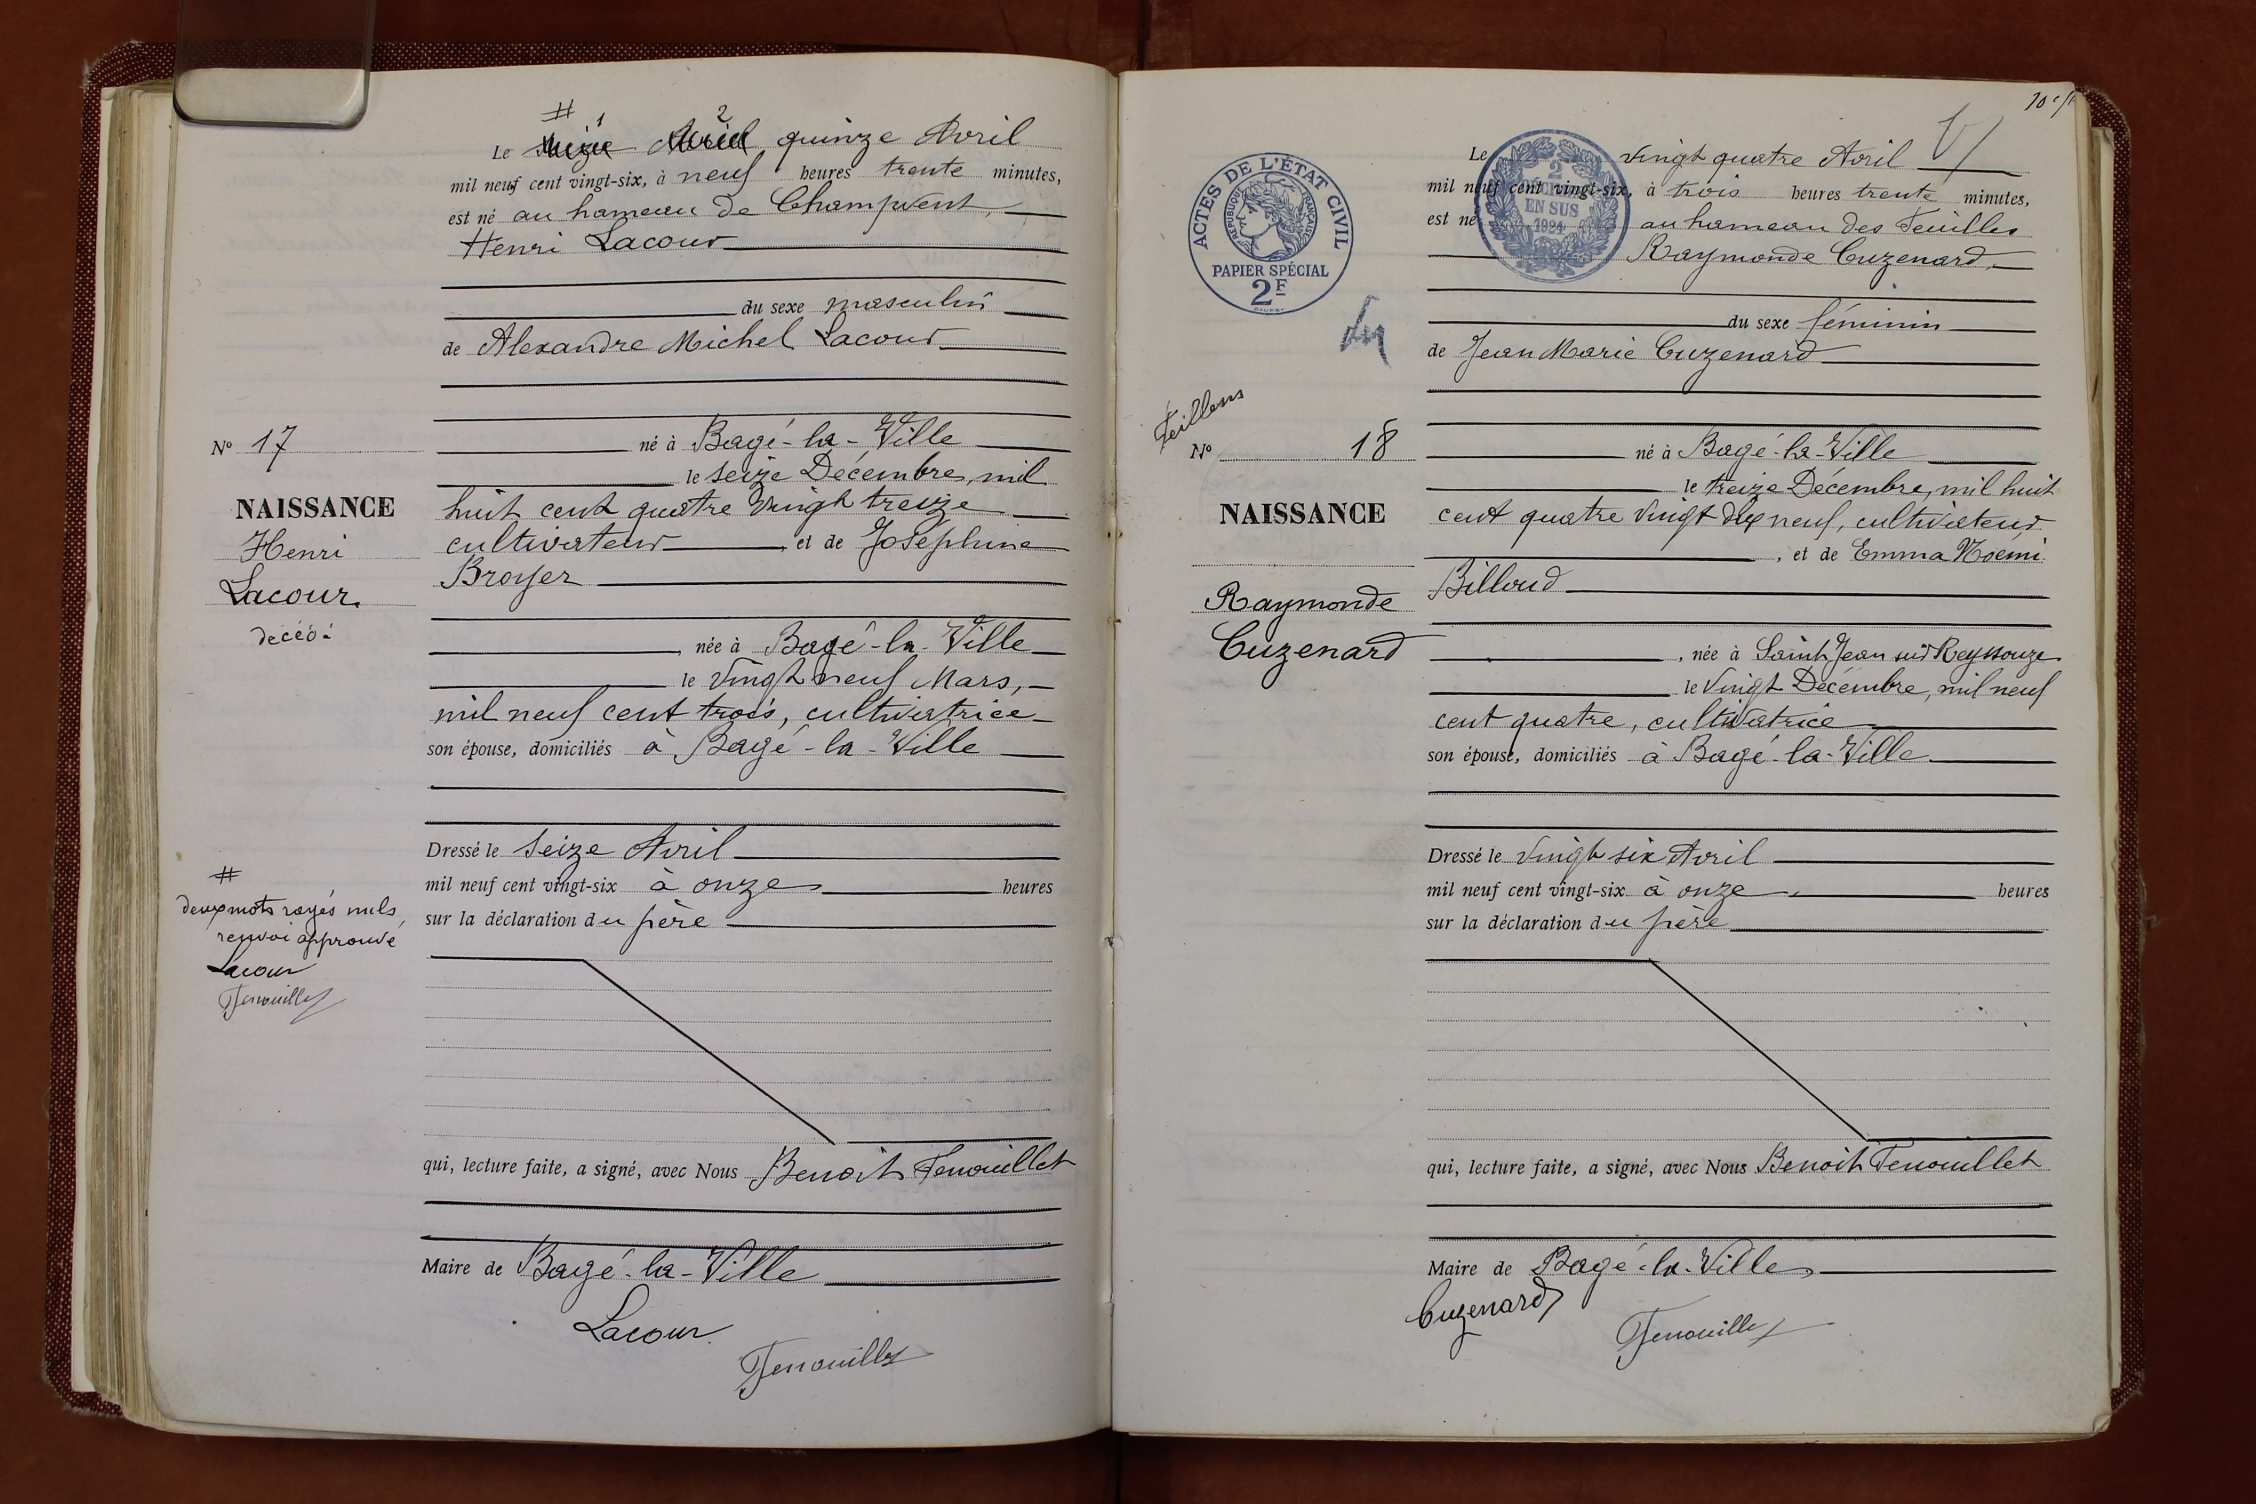 #
1 2
Le seize Avril quinze Avril
mil neuf cent vingt-six, à neuf heures trente minutes,
est né au hameau de Champvent,
Henri Lacour
du sexe masculin
de Alexandre Michel Lacour
né à Bagé-la-Ville
le seize Décembre, mil
huit cent quatre vingt treize
cultivateur et de Joséphine
Broyer
, née à Bagé-la-Ville
le vingt neuf Mars,
mil neuf cent trois, cultivatrice
son épouse, domiciliés à Bagé-la-Ville
Dressé le seize Avril
mil neuf cent vingt-six à onze heures
sur la déclaration du père
qui, lecture faite, a signé, avec Nous Benoit Fenouillet
Maire de Bagé-la-Ville
Lacour
Fenouillet
No 17
NAISSANCE
Henri
Lacour.
décéd.
#
deux mots rayés nuls,
renvoi approuvé
Lacour
Fenouillet
ACTES DE L'ÉTAT CIVIL
RÉPUBLIQUE FRANÇAISE
PAPIER SPÉCIAL
2F
Feillens
No 18
NAISSANCE
Raymonde
Cuzenard
2
DÉCIMES
EN SUS
1924
Le vingt quatre Avril
mil neuf cent vingt-six, à trois heures trente minutes,
est né au hameau des Feuilles
Raymonde Cuzenard,
du sexe féminin
de Jean Marie Cuzenard
né à Bagé-la-Ville
le treize Décembre, mil huit
cent quatre vingt dix neuf, cultivateur
, et de Emma Noémi
Billoud
, née à Saint Jean sur Reyssouze
le vingt Décembre, mil neuf
cent quatre, cultivatrice
son épouse, domiciliés à Bagé-la-Ville
Dressé le vingt six Avril
mil neuf cent vingt-six à onze heures
sur la déclaration du père
qui, lecture faite, a signé, avec Nous Benoit Fenouillet
Maire de Bagé-la-Ville
Cuzenard
Fenouillet